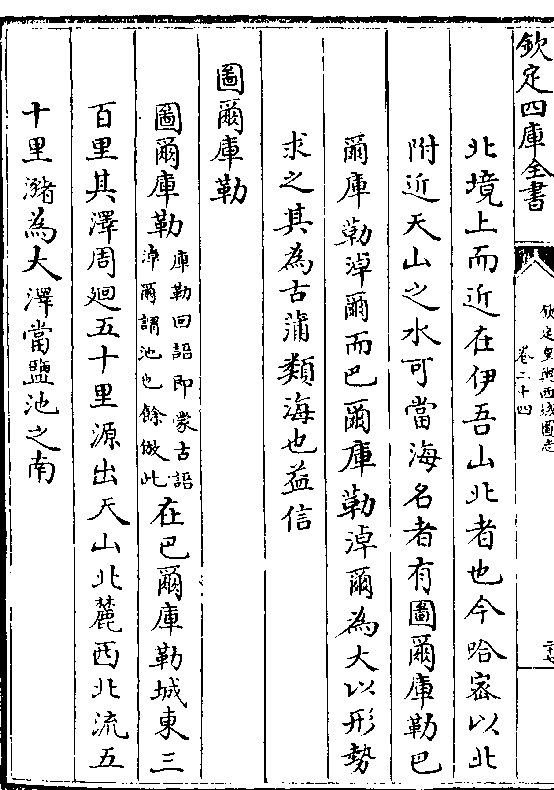 欽定四庫全書
欽定皇輿西域圖志
卷二十四
北境上而近在伊吾山北者也今哈密以北
附近天山之水可當海名者有圖爾庫勒巴
爾庫勒淖爾而巴爾庫勒淖爾為大以形勢
求之其為古蒲類海也益信
圖爾庫勒
圖爾庫勒庫勒回語即蒙古語淖爾謂池也餘倣此在巴爾庫勒城東三
百里其澤周廻五十里源出天山北麓西北流五
十里瀦為大澤當鹽池之南